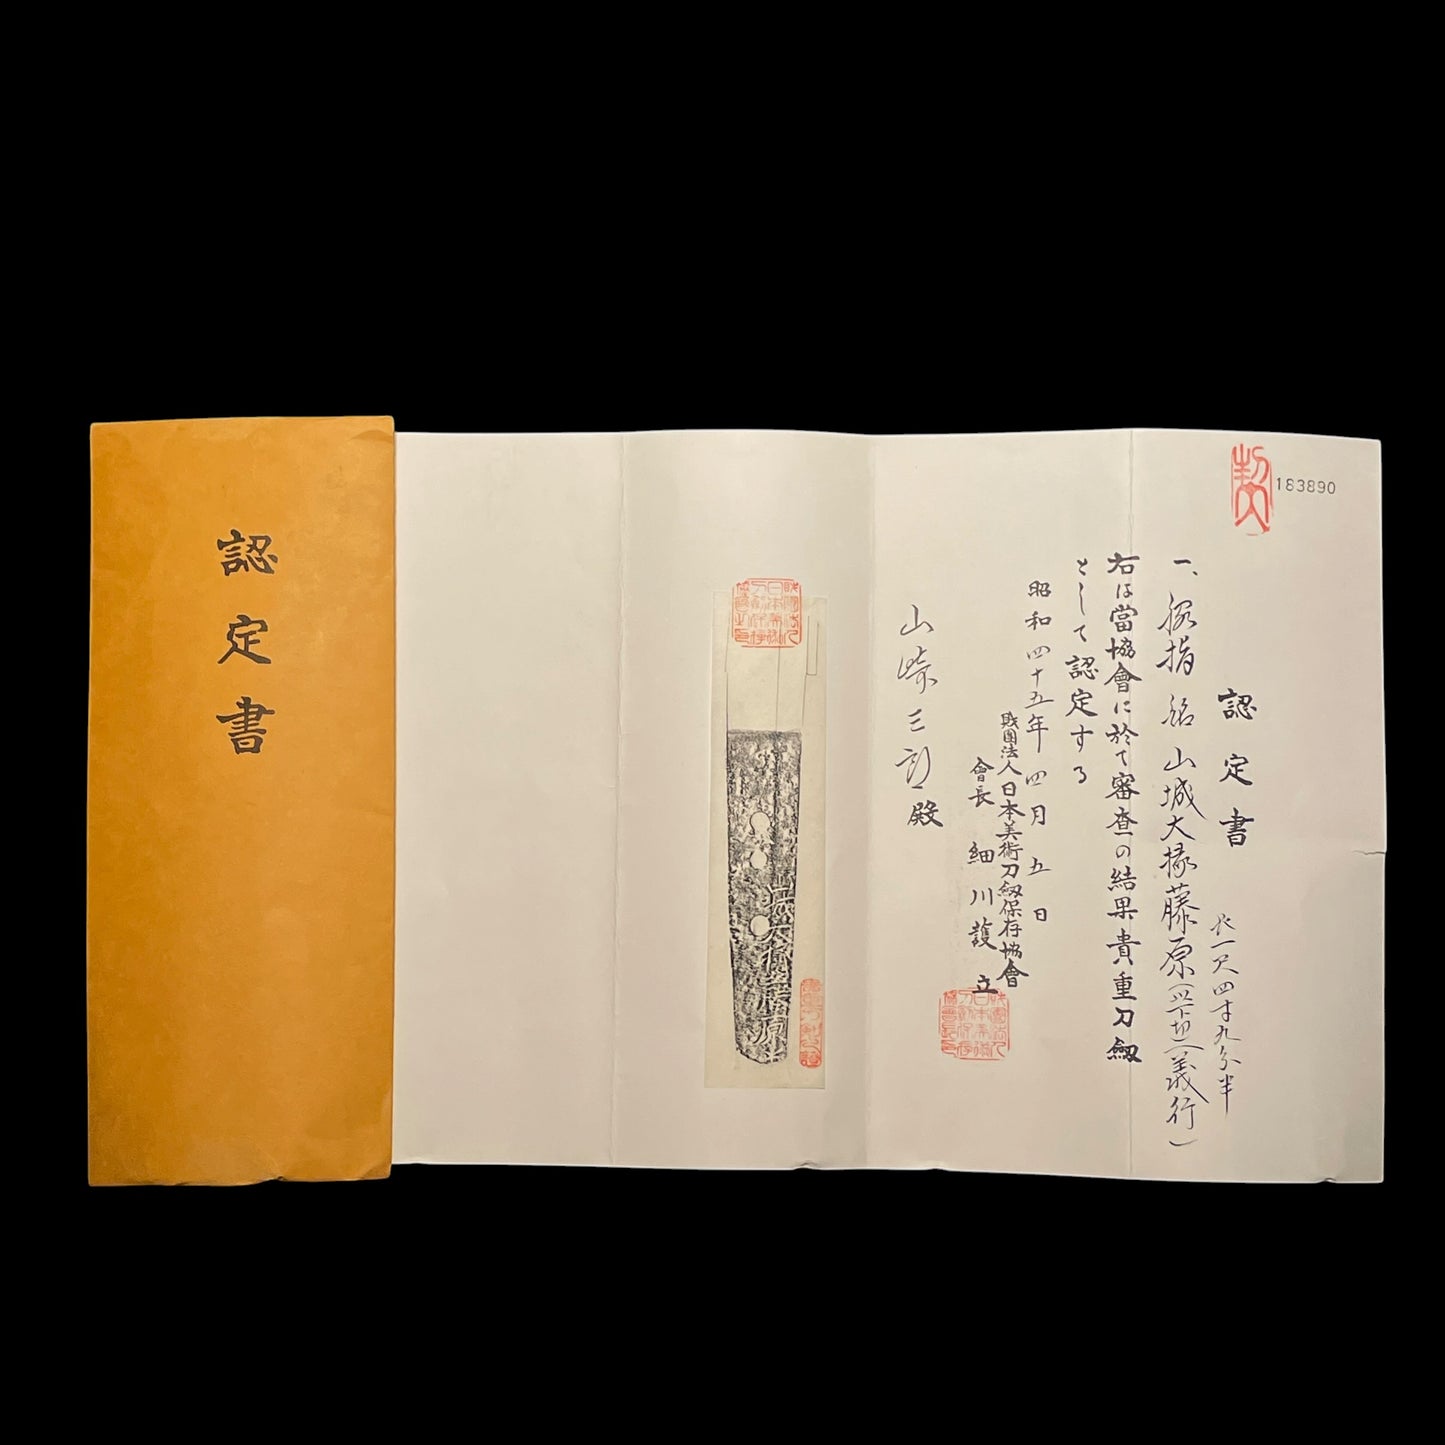 認定書
183890
認定書
一、脇指 銘 山城大掾藤原(以下切)(義行)
長一尺四寸九分半
右は當協會に於て審査の結果貴重刀劔
として認定する
昭和四十五年四月五日
財團法人日本美術刀劔保存協會
會長 細川護立
山崎三郎殿